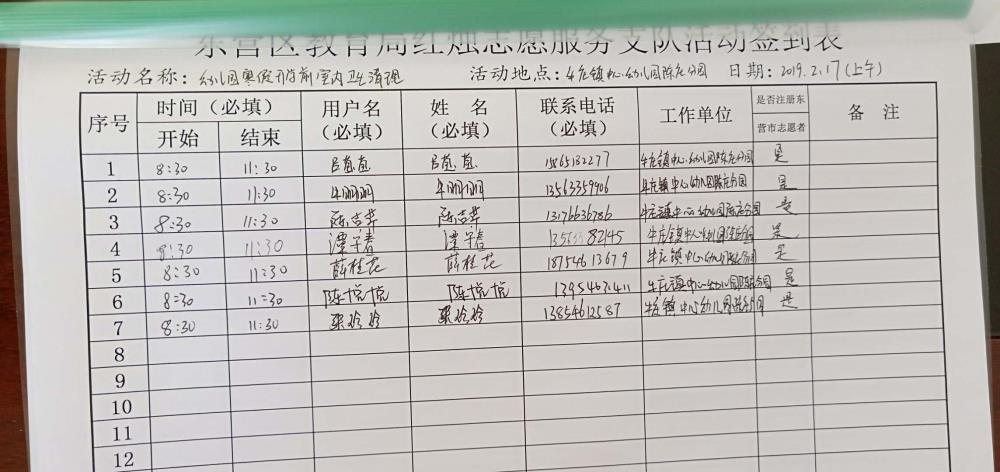 东营区教育局红烛志愿服务支队活动签到表
活动名称：幼儿园寒假开园前室内卫生清理 活动地点：牛庄镇中心幼儿园陈庄分园 日期：2019.2.17(上午)
序号 时间（必填） 用户名（必填） 姓 名（必填） 联系电话（必填） 工作单位 是否注册东营市志愿者 备 注
开始 结束
1 8:30 11:30 吕苗苗 吕苗苗 牛庄镇中心幼儿园陈庄分园 是
2 8:30 11:30 牛明明 牛明明 13563359406 牛庄镇中心幼儿园陈庄分园 是
3 8:30 11:30 陈吉苹 陈吉苹 13176636786 牛庄镇中心幼儿园陈庄分园 是
4 8:30 11:30 谭学春 谭学春 13563382145 牛庄镇中心幼儿园陈庄分园 是
5 8:30 11:30 薛桂花 薛桂花 18754613679 牛庄镇中心幼儿园陈庄分园 是
6 8:30 11:30 陈悦悦 陈悦悦 13954672411 牛庄镇中心幼儿园陈庄分园 是
7 8:30 11:30 梁玲玲 梁玲玲 13854612587 牛庄镇中心幼儿园陈庄分园 是
8
9
10
11
12